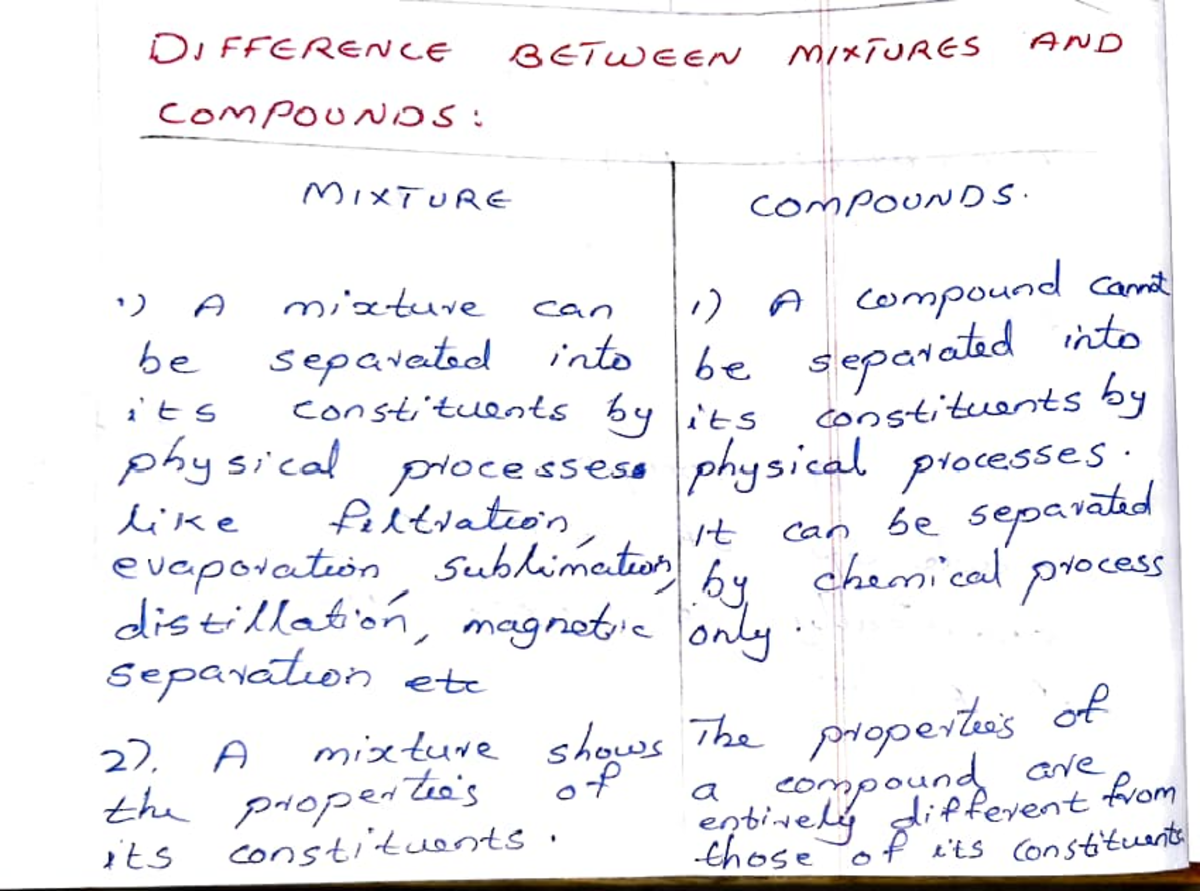 DIFFERENCE BETWEEN MIXTURES AND
COMPOUNDS:
MIXTURE
1) A mixture can
be separated into
its constituents by
physical processess
like filtration,
evaporation, sublimation,
distillation, magnetic
separation etc
2). A mixture shows
the properties of
its constituents.
COMPOUNDS.
1) A compound cannot
be separated into
its constituents by
physical processes.
It can be separated
by chemical process
only.
The properties of
a compound are
entirely different from
those of its constituents